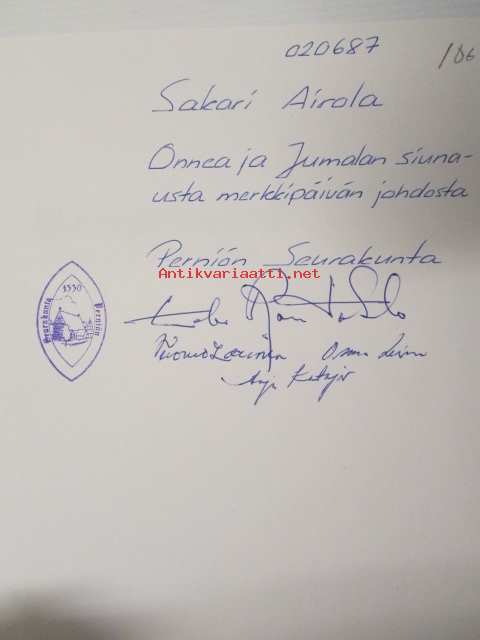 020687
/06
Sakari Airola
Onnea ja Jumalan siuna-
usta merkkipäivän johdosta
Perniön Seurakunta
Antikvariaatti.net
1330
Seurakunta Perniön